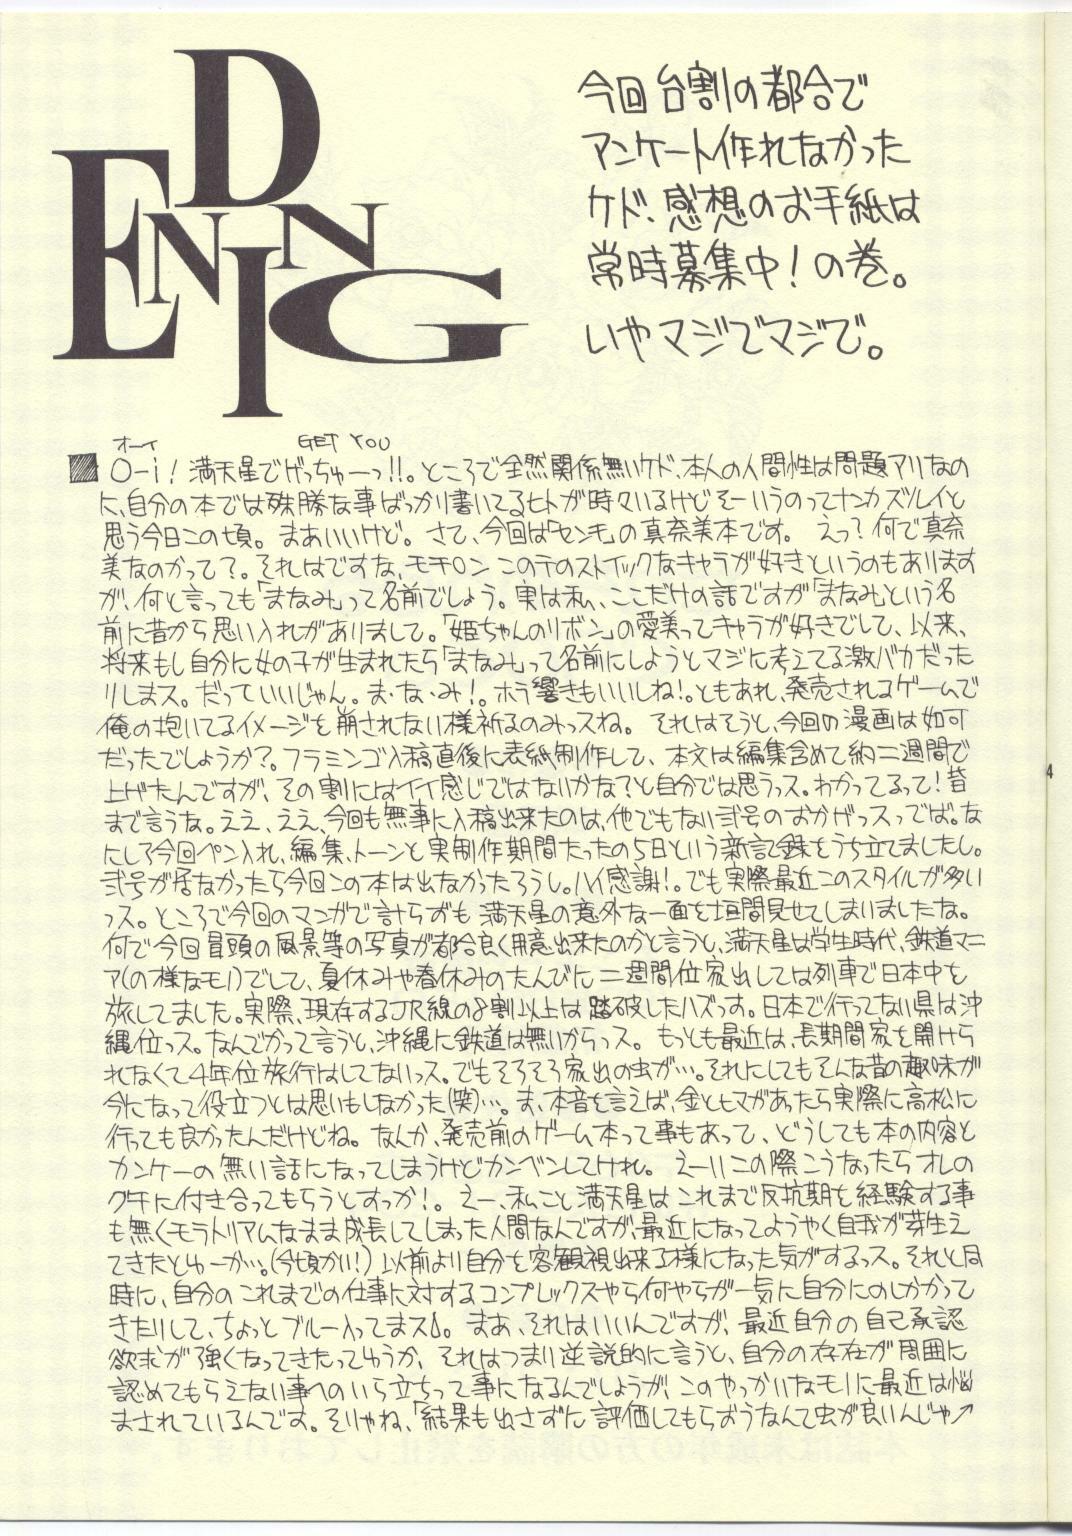 ENDING
今回台割の都合で
アンケート作れなかった
ケド、感想のお手紙は
常時募集中!の巻。
いやマジでマジで。
オーイ GET YOU
O-i! 満天星でげっちゅーっ!!。ところで全然関係無いケド、本人の人間性は問題アリなの
に、自分の本では殊勝な事ばっかり書いてるヒトが時々いるけどそーいうのってナンカズルイと
思う今日この頃。まあいいけど。さて、今回は「センチ」の真奈美本です。 えっ?何で真奈
美なのかって?。それはですな、モチロンこのテのストイックなキャラが好きというのもあります
が、何と言っても「まなみ」って名前でしょう。実は私、ここだけの話ですが「まなみ」という名
前に昔から思い入れがありまして。「姫ちゃんのリボン」の愛美ってキャラが好きでして、以来、
将来もし自分に女の子が生まれたら「まなみ」って名前にしようとマジに考えてる激バカだった
りしまス。だっていいじゃん。ま・な・み!。ホラ響きもいいしね!。ともあれ、発売されるゲームで
俺の抱いてるイメージを崩されない様祈るのみっスね。 それはそうと、今回の漫画は如何
だったでしょうか?。フラミンゴ入稿直後に表紙制作して、本文は編集含めて約二週間で
上げたんですが、その割にはイイ感じではないかな?と自分では思うっス。わかってるって!皆
まで言うな。ええ、ええ、今回も無事に入稿出来たのは、他でもない弐号のおかげっスってば。な
にしろ今回ペン入れ、編集、トーンと実制作期間たったの5日という新記録をうち立てましたし。
弐号が居なかったら今回この本は出なかったろうし。ハイ感謝!。でも実際最近このスタイルが多い
っス。ところで今回のマンガで計らずも満天星の意外な一面を垣間見せてしまいましたな。
何で今回冒頭の風景等の写真が都合良く用意出来たのかと言うと、満天星は学生時代、鉄道マニ
ア(の様なモノ)でして、夏休みや春休みのたんびに二週間位家出しては列車で日本中を
旅してました。実際、現存するJR線の8割以上は踏破したハズっす。日本で行ってない県は沖
縄位っス。なんでかって言うと、沖縄に鉄道は無いからっス。 もっとも最近は、長期間家を開けら
れなくて4年位旅行はしてないっス。でもそろそろ家出の虫が…。それにしてもそんな昔の趣味が
今になって役立つとは思いもしなかった(笑)…。ま、本音を言えば、金とヒマがあったら実際に高松に
行っても良かったんだけどね。なんか、発売前のゲーム本って事もあって、どうしても本の内容と
カンケーの無い話になってしまうけどカンベンしてけれ。 えーいこの際こうなったらオレの
グチに付き合ってもらうとすっか!。 えー、私こと満天星はこれまで反抗期を経験する事
も無くモラトリアムなまま成長してしまった人間なんですが、最近になってようやく自我が芽生え
てきたとゆーか…。(今頃かい!)以前より自分を客観視出来る様になった気がするっス。それと同
時に、自分のこれまでの仕事に対するコンプレックスやら何やらが一気に自分にのしかかって
きたりして、ちょっとブルー入ってまスΔ。 まあ、それはいいんですが、最近自分の自己承認
欲求が強くなってきたってゆうか、それはつまり逆説的に言うと、自分の存在が周囲に
認めてもらえない事へのいら立ちって事になるんでしょうが、このやっかいなモノに最近は悩
まされているんです。そりゃね、「結果も出さずに評価してもらおうなんて虫が良いんじゃ↗
4
本誌は未成年の方の購読を禁止しております。